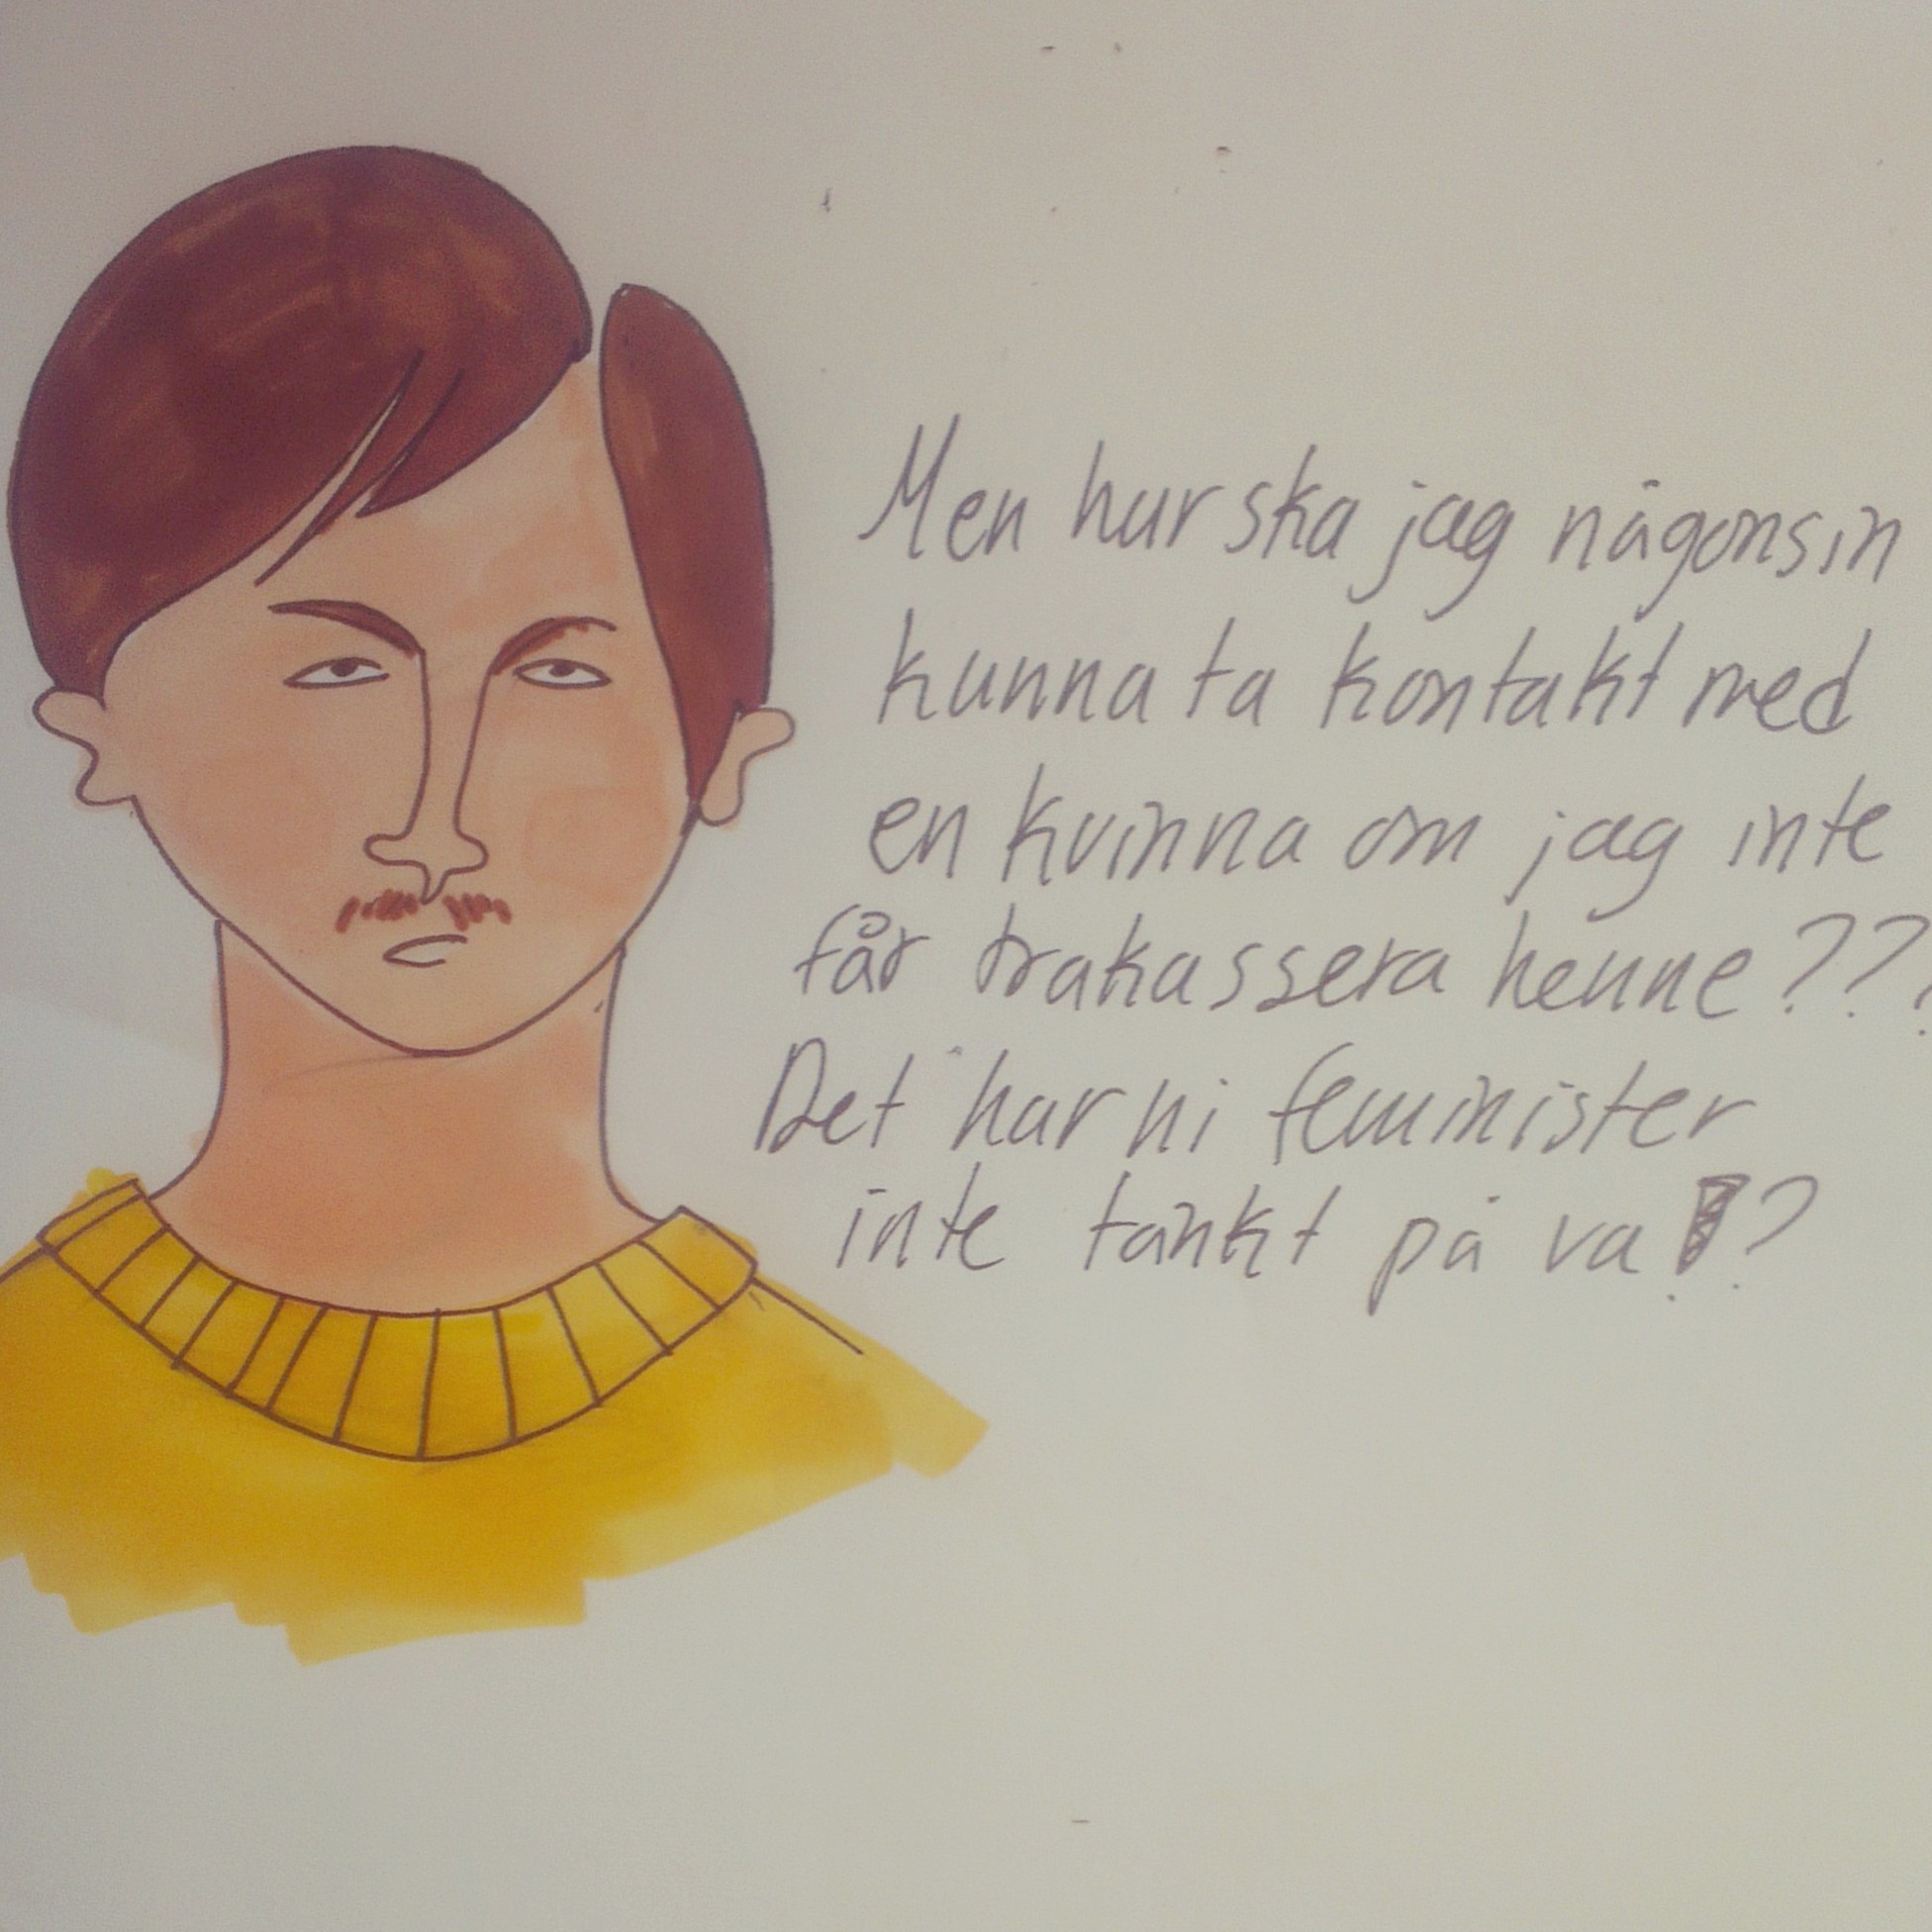 Men hur ska jag någonsin
kunna ta kontakt med
en kvinna om jag inte
får trakassera henne???
Det har ni feminister
inte tänkt på va!?